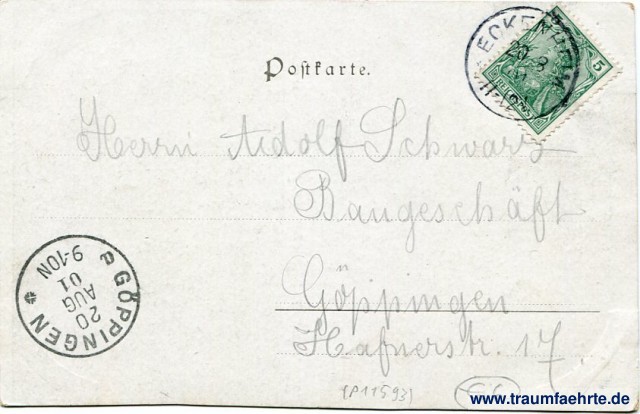 Postkarte.
5
REICHSPOST
20 8
Herrn Adolf Schwarz
Baugeschäft
Göppingen
Hafnerstr. 17.
GÖPPINGEN
20
AUG
01
9-10N
(P11593)
www.traumfaehrte.de